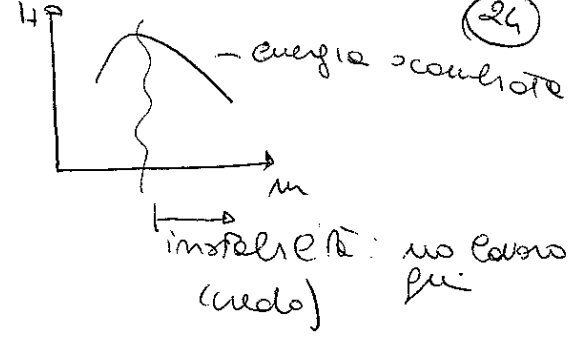 24
H
energia scambiata
m
instabilità: no lavoro
(credo) qui